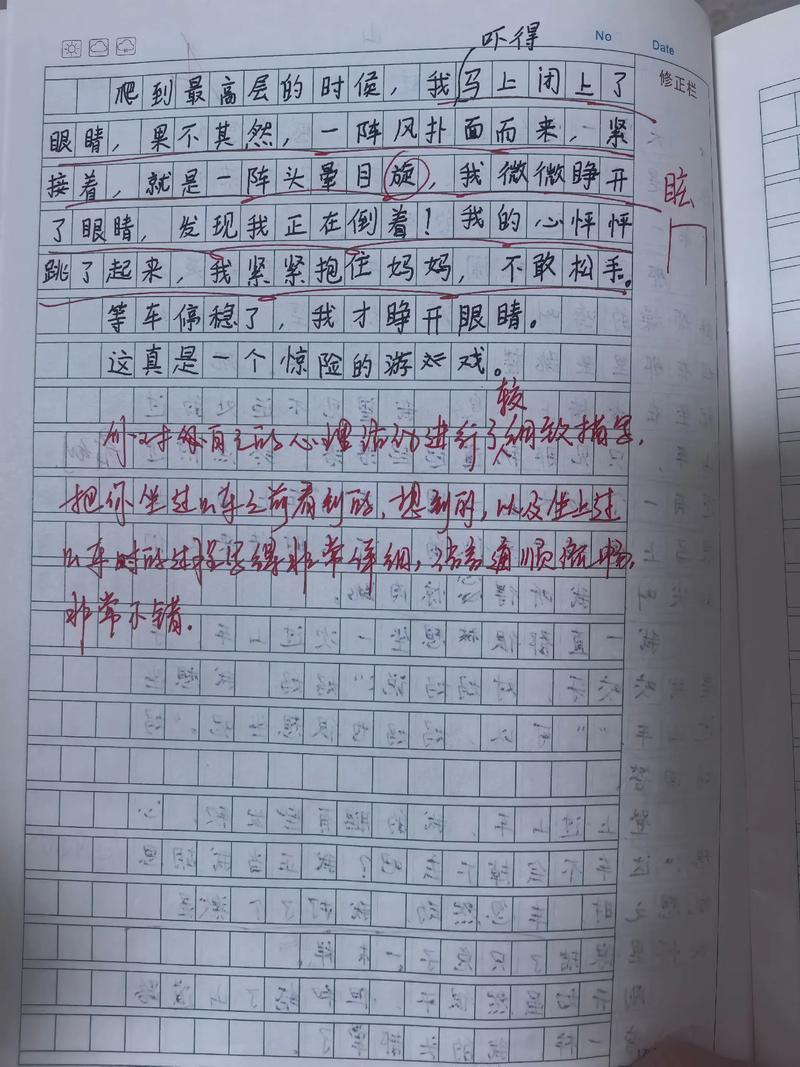 吓得
No Date
修正栏
爬到最高层的时候，我马上闭上了
眼睛，果不其然，一阵风扑面而来，紧
接着，就是一阵头晕目旋，我微微睁开
眩
了眼睛，发现我正在倒着！我的心怦怦
跳了起来，我紧紧抱住妈妈，不敢松手。
等车停稳了，我才睁开眼睛。
这真是一个惊险的游戏。
较
你对自己的心理活动进行了细致描写，
把你坐过山车之前看到的，想到的，以及坐上过
山车时的过程写得非常详细，语言通顺流畅，
非常不错.